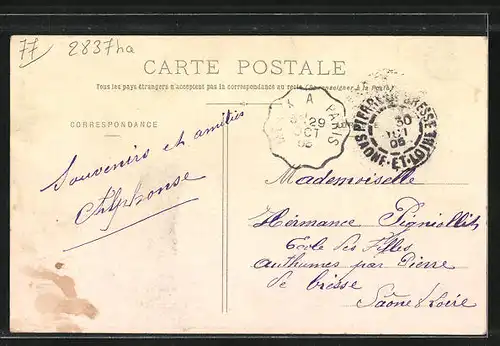 77 2837ha
CARTE POSTALE
Tous les pays étrangers n'acceptent pas la correspondance au recto (Se renseigner à la Poste)
CORRESPONDANCE
A PARIS
29
OCT
05
PIERRE BRESSE
30
OCT
05
SAONE-ET-LOIRE
Souvenirs et amitiés
Alphonse
Mademoiselle
Hermance Pigniollit
École des Filles
Authumes par Pierre
de Bresse
Saône & Loire